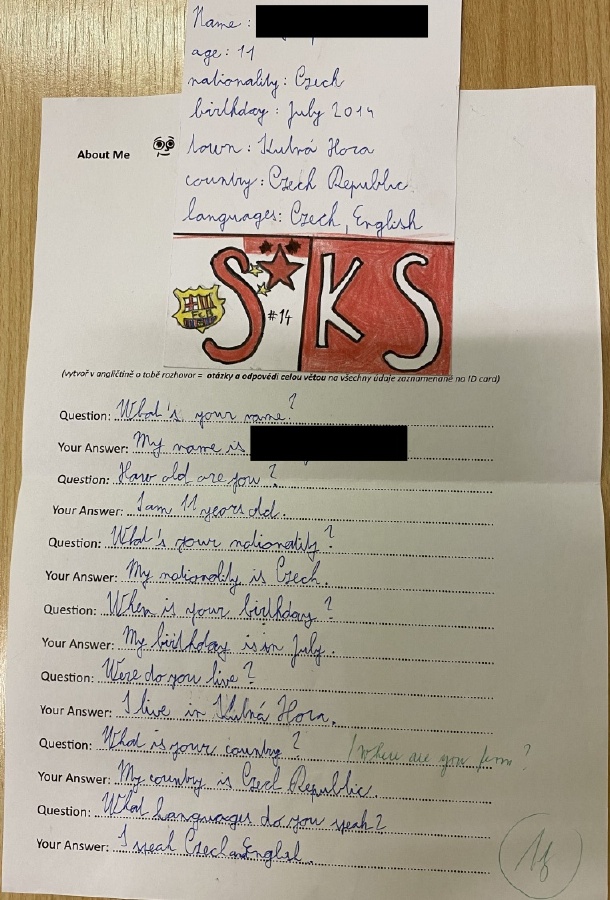 Name:
age: 11
nationality: Czech
birthday: July 2014
town: Kutná Hora
country: Czech Republic
languages: Czech, English
About Me
FCB
#14
S K S
(vytvoř v angličtině o tobě rozhovor = otázky a odpovědi celou větou na všechny údaje zaznamenané na ID card)
Question: What's your name?
Your Answer: My name is
Question: How old are you?
Your Answer: I am 11 years old.
Question: What's your nationality?
Your Answer: My nationality is Czech.
Question: When is your birthday?
Your Answer: My birthday is in July.
Question: Were do you live?
Your Answer: I live in Kutná Hora.
Question: What is your country? / Where are you from?
Your Answer: My country is Czech Republic.
Question: What languages do you speak?
Your Answer: I speak Czech and English.